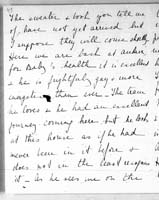 The sweater & book you tell me
of, have not yet arrived but I
suppose they will come shortly
Here we are back at
for baby's health. it is excellent
& he is frightfully gay & more
than ever — The team
he loves & he had an excellent
journey coming here but he looks
at this house as if he had
never been in it before &
does not in the least
it — As he sees me on the